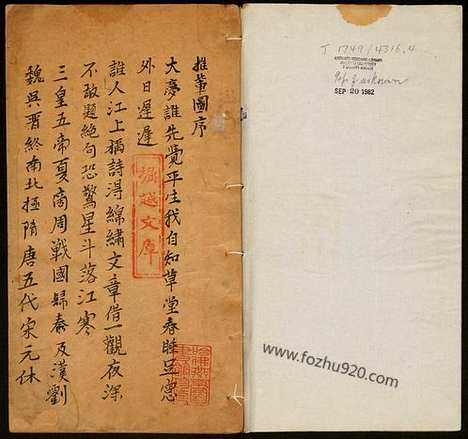 推董圖序
大夢誰先覺平生我自知草堂春睡足窓
外日遲遲
誰人江上稱詩淂綿繡文章借一觀夜深
不敢題絕句恐驚星斗落江寒
三皇五帝夏商周戰國歸秦及漢劉
魏吳晋終南北極隋唐五代宋元休
文庫
T 1749/4316.4
SEP 20 1982
www.fozhu920.com